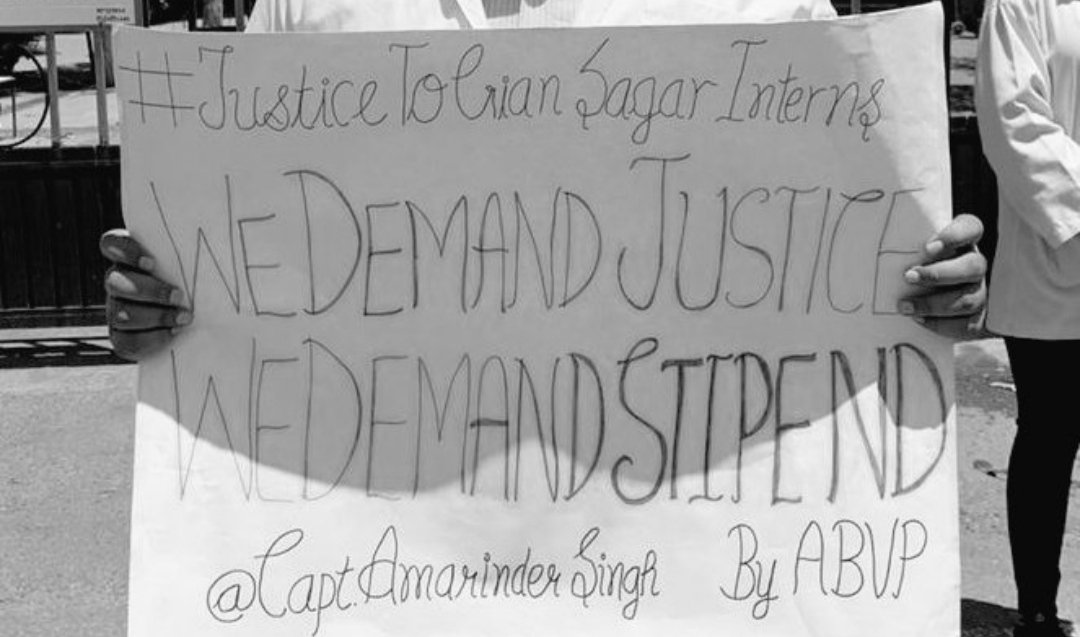 #JusticeToGian Sagar Interns
WE DEMAND JUSTICE
WE DEMAND STIPEND
@Capt.Amarinder Singh By ABVP